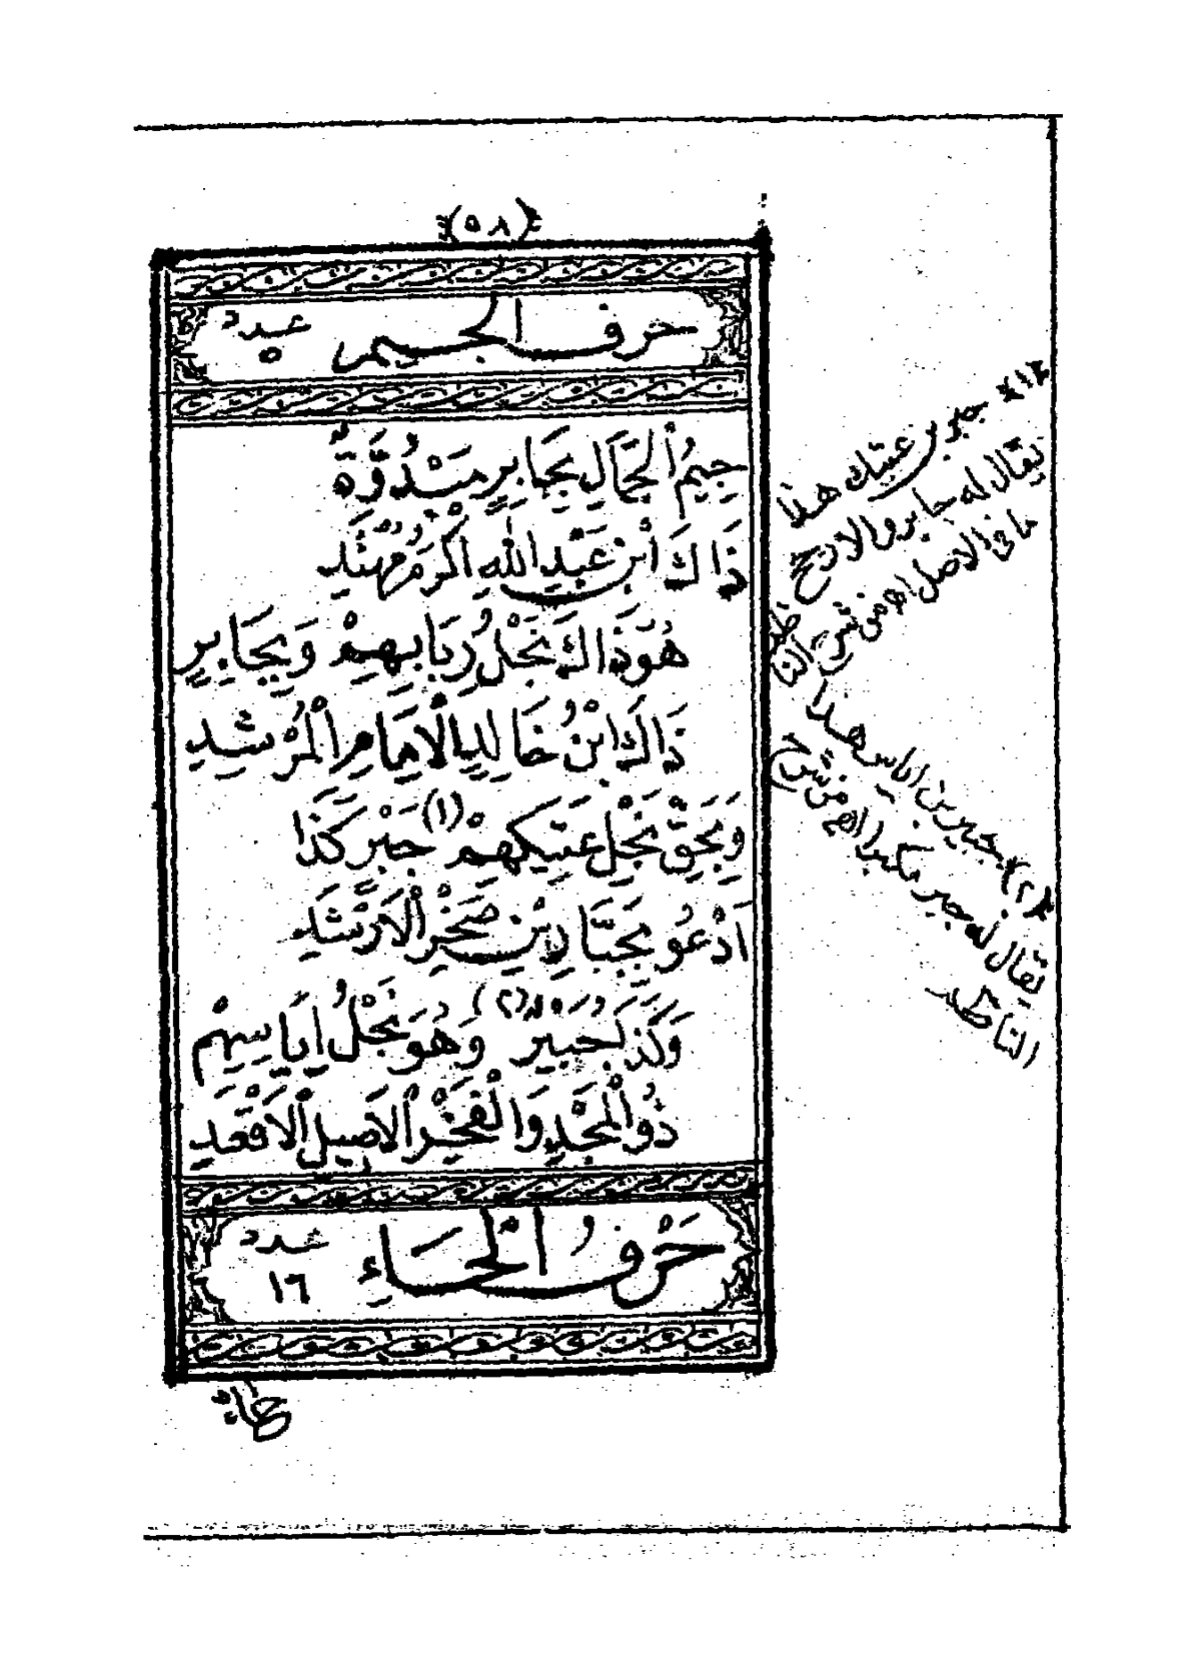 (٥٨)
حرف الجيم عدد ٥
جِيمُ الْجَمَالِ بِجَابِرٍ مَبْدُوَّةٌ
ذَاكَ ابْنُ عَبْدِ اللهِ أَكْرَمُ مُهْتَدِ
هُوَ ذَاكَ نَجْلُ رِيَابِهِمْ وَبِجَابِرٍ
ذَاكَ ابْنُ خَالِدٍ الْاِمَامِ الْمُرْشِدِ
وَبِحَقِّ نَجْلِ عَتِيكِهِمْ (١) جَبْرٍ كَذَا
اَدْعُو بِجَبَّارِ بْنِ صَخْرِ الْاَرْشَدِ
وَكَذَ بُجَبَيْرٍ (٢) وَهُوَ نَجْلُ اِيَاسِهِمْ
ذُو الْمَجْدِ وَالْفَخْرِ الْاَصِيلِ الْاَقْعَدِ
حَرْفُ الْحَاءِ عدد ١٦
حاء
(١) جبر بن عتيك هذا
يقال له جابر والارجح
ما فى الاصل اهـ من شرح الناظم
(٢) جبير بن اياس هذا
يقال له جبر مكبرا اهـ من شرح
الناظم